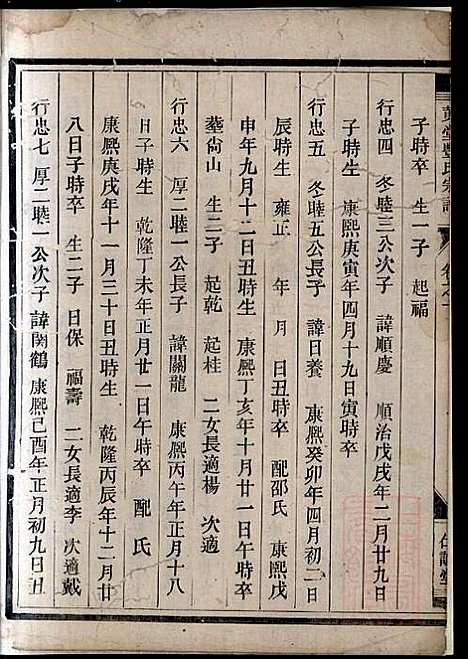 子時卒 生一子 起福
行忠四 冬睦三公次子 諱順慶 順治戊戌年二月廿九日
子時生 康熙庚寅年四月十九日寅時卒
行忠五 冬睦五公長子 諱日養 康熙癸卯年四月初二日
辰時生 雍正 年 月 日丑時卒 配邵氏 康熙戊
申年九月十二日丑時生 康熙丁亥年十月廿一日午時卒
塟尙山 生二子 起乾 起桂 二女長適楊 次適
行忠六 厚二睦一公長子 諱關龍 康熙丙午年正月十八
日子時生 乾隆丁未年正月廿一日午時卒 配 氏
康熙庚戌年十一月三十日丑時生 乾隆丙辰年十二月廿
八日子時卒 生二子 日保 福壽 二女長適李 次適戴
行忠七 厚二睦一公次子 諱閑鶴 康熙己酉年正月初九日丑